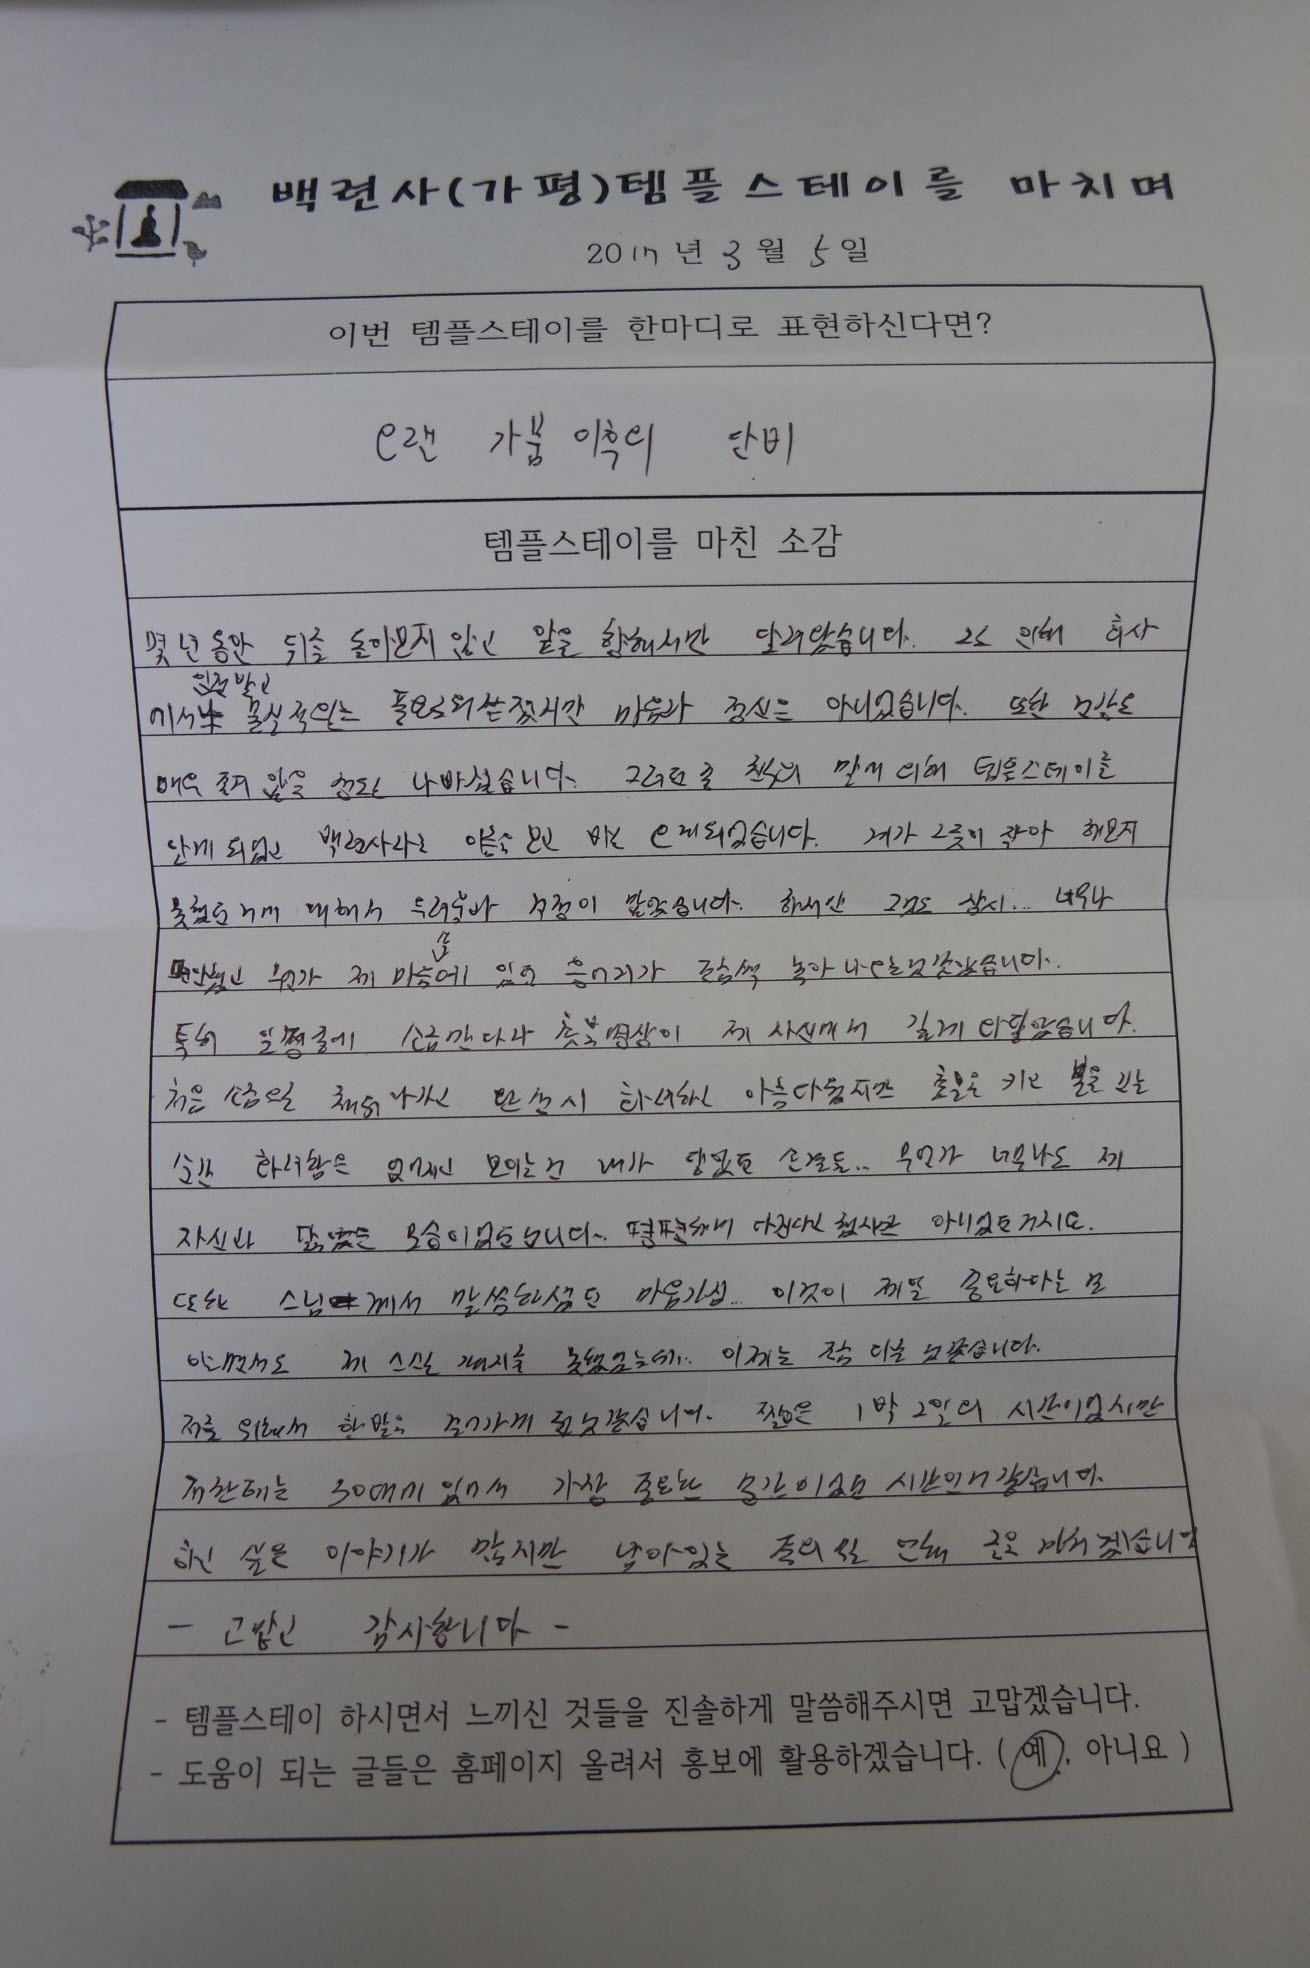 백련사(가평)템플스테이를 마치며
2017년 3월 5일
이번 템플스테이를 한마디로 표현하신다면?
오랜 가뭄 이후의 단비
템플스테이를 마친 소감
몇년동안 뒤를 돌아보지 않고 앞을 향해서만 달려왔습니다. 회사
인정받고
에서 물질적으로는 풍요로워졌지만 마음과 정신은 아니었습니다. 또한 건강도
매우 좋지 않을 정도로 나빠졌습니다. 그러던 중 친척의 말에 의해 템플스테이를
알게 되었고 백련사라는 이름을 보고 바로 오게되었습니다. 제가 그동안 해보지
못했던 것에 대해서 두려움과 걱정이 많았습니다. 하지만 그것도 잠시... 너무나
속
편안했고 뭔가 제 마음에 있던 응어리가 조금씩 녹아 나오는것 같았습니다.
특히 일정중에 소금만다라 촛불명상이 제 자신에게 깊게 와닿았습니다.
처음 소금을 채워나가고 완성시 화려하고 아름다웠지만 촛불을 키고 불을 끄는
순간 화려함은 없어지고 보이는건 내가 손길들.. 무언가 너무나도 제
자신과 닮았던 모습이었던겁니다. 평편하게 다진다고 했지만 아니었던거지요.
또한 스님께서 말씀하셨던 마음가짐... 이것이 제일 중요하다는 걸
알면서도 제 스스로 갖지를 못했었는데.. 이제는 조금 다를것 같습니다.
저를 위해서 한발 나가게 된것 같습니다. 짧은 1박 2일의 시간이었지만
저한테는 30대에 있어서 가장 중요한 순간이었던 시간인거 같습니다.
하고 싶은 이야기가 많지만 남아있는 글을 마치겠습니다
- 고맙고 감사합니다 -
- 템플스테이 하시면서 느끼신 것들을 진솔하게 말씀해주시면 고맙겠습니다.
- 도움이 되는 글들은 홈페이지 올려서 홍보에 활용하겠습니다. ( 예 , 아니요 )